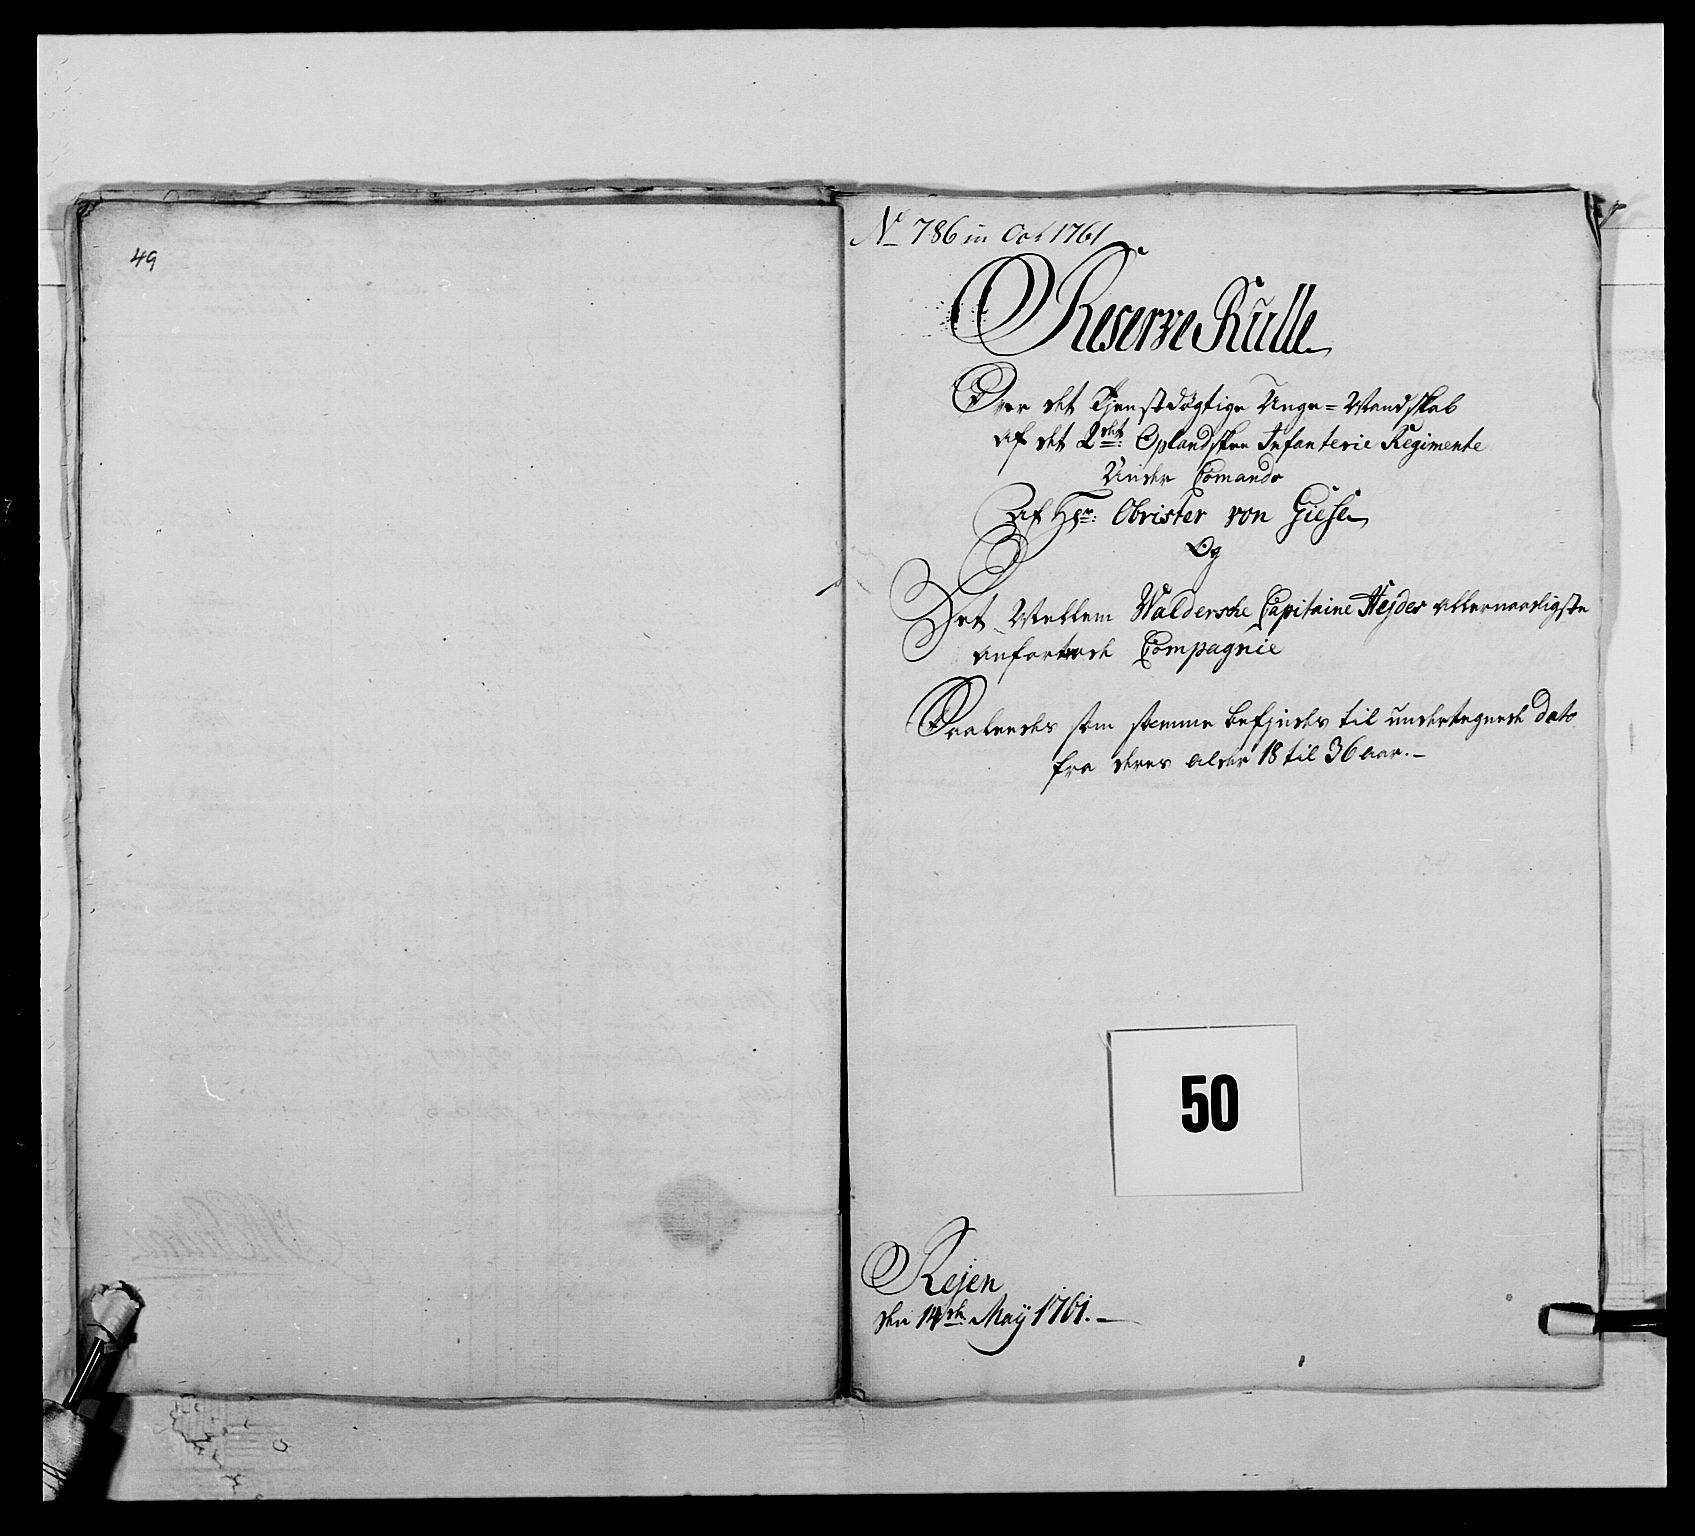 49
No 786 in Oct 1761
Reserve Rulle
Over det Tienstdögtige Unge=Mandskab
af det 2det: Oplandske Infanterie Regimente
Under Comando
Af Hr: Obrister von Giese
Og
Det Mellem Walderske Capitaine Hejdes allernaadigste
anfortrode Compagnie
Saaledes som samme befindes til undertegnede Dato
fra deres alder 18 til 36 aar.-
50
Rejen
den 14de May 1761.-